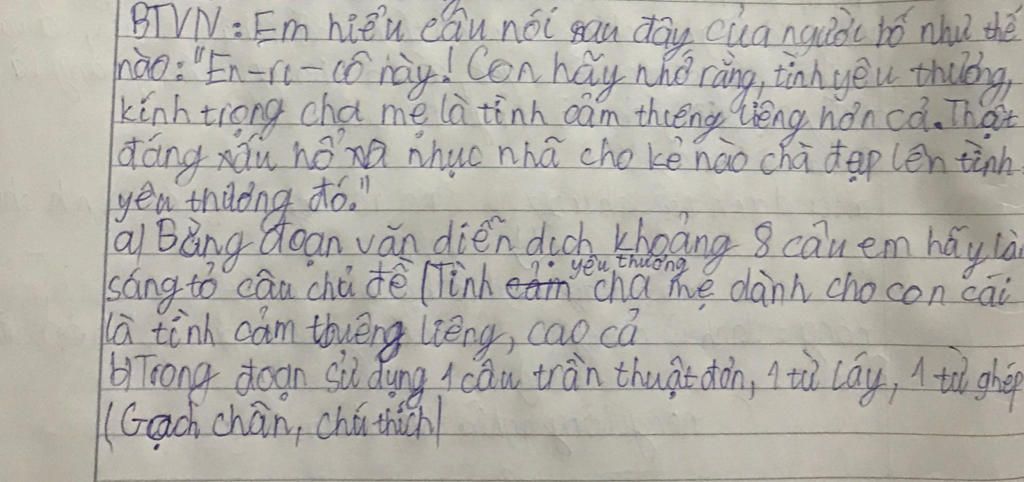 BTVN: Em hiểu câu nói sau đây của người bố như thế
nào: "En-ri-cô này! Con hãy nhớ rằng, tình yêu thương,
kính trọng cha mẹ là tình cảm thiêng liêng hơn cả. Thật
đáng xấu hổ và nhục nhã cho kẻ nào chà đạp lên tình
yêu thương đó."
a) Bằng đoạn văn diễn dịch khoảng 8 câu em hãy làm
yêu thương
sáng tỏ câu chủ đề (Tình cảm cha mẹ dành cho con cái
là tình cảm thiêng liêng, cao cả
b) Trong đoạn sử dụng 1 câu trần thuật đơn, 1 từ láy, 1 từ ghép
(Gạch chân, chú thích)